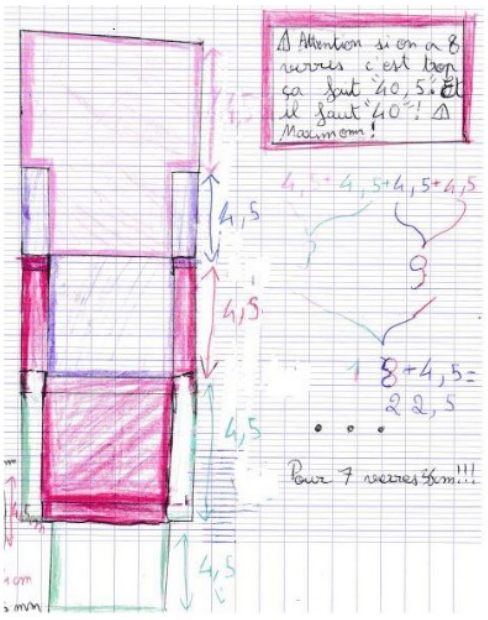 ⚠ Attention si on a 8
verres c'est trop
ça fait "40,5". Et
il faut "40"! ⚠
Maximom!
4,5
4,5+4,5+4,5+4,5
4,5
9
4,5
18+4,5=
22,5
4,5
...
Pour 7 verres
4,5